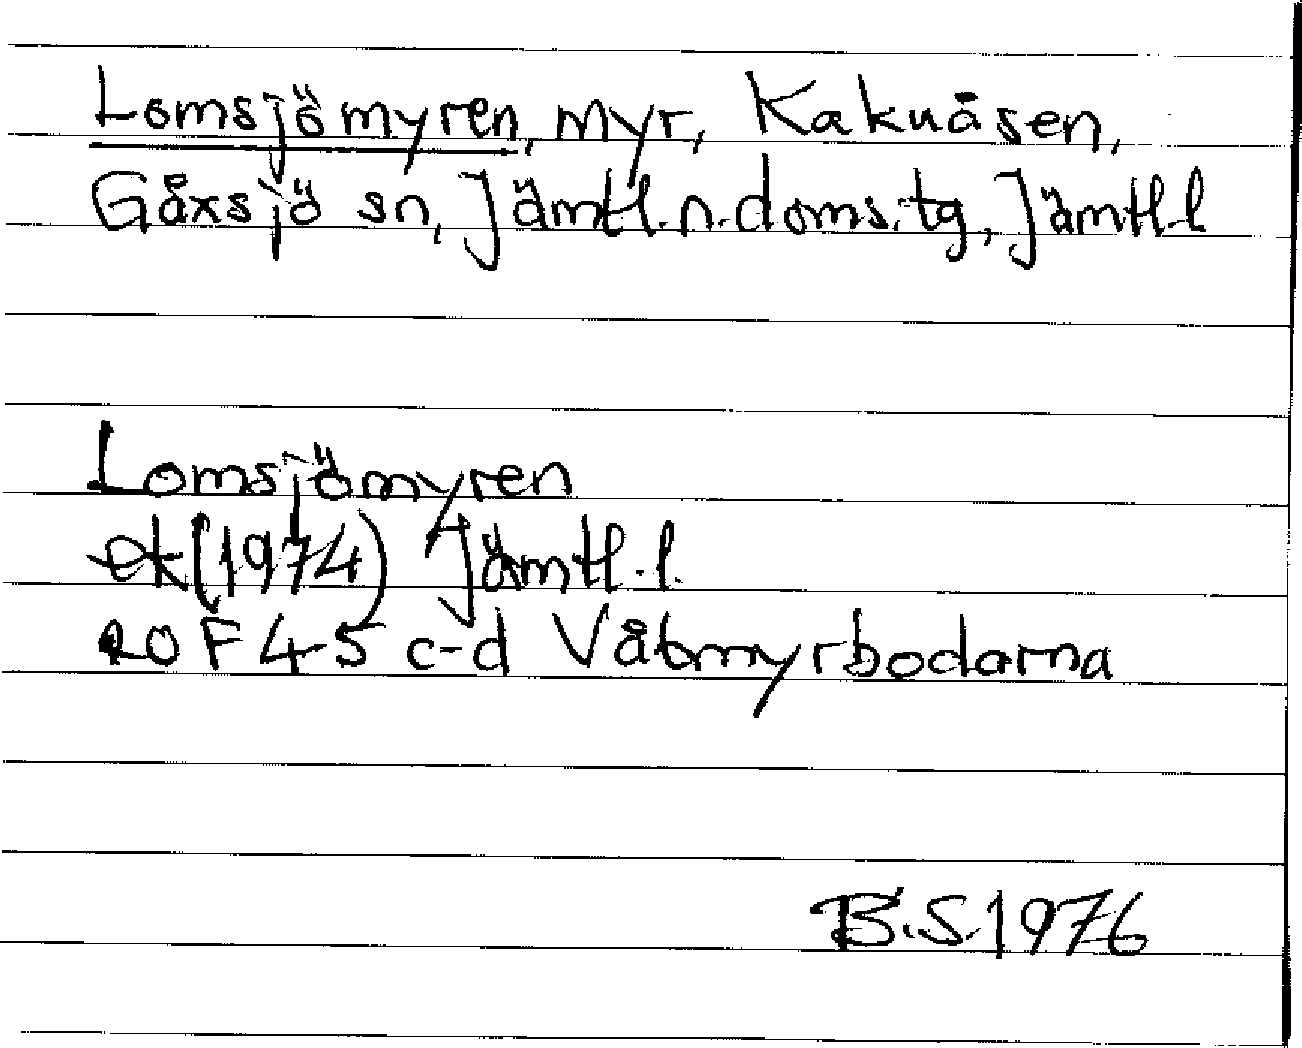 Lomsjömyren, myr, Kakuåsen,
Gåxsjö sn, Jämtl. n. doms. tg, Jämtl. l
Lomsjömyren
ek (1974) Jämtl. l.
20 F 4-5 c-d Våtmyrbodarna
B.S. 1976